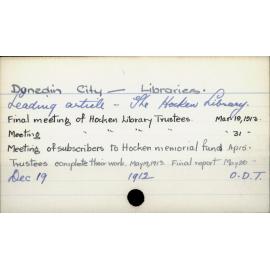 Dunedin City — Libraries.
Leading article - The Hocken Library.
Final meeting of Hocken Library Trustees. Mar. 19, 1913.
Meeting " " " " " 31 -
Meeting of subscribers to Hocken memorial fund Ap. 5.
Trustees complete their work. May 19, 1913. Final report May 20 -
Dec 19 1912 O.D.T.